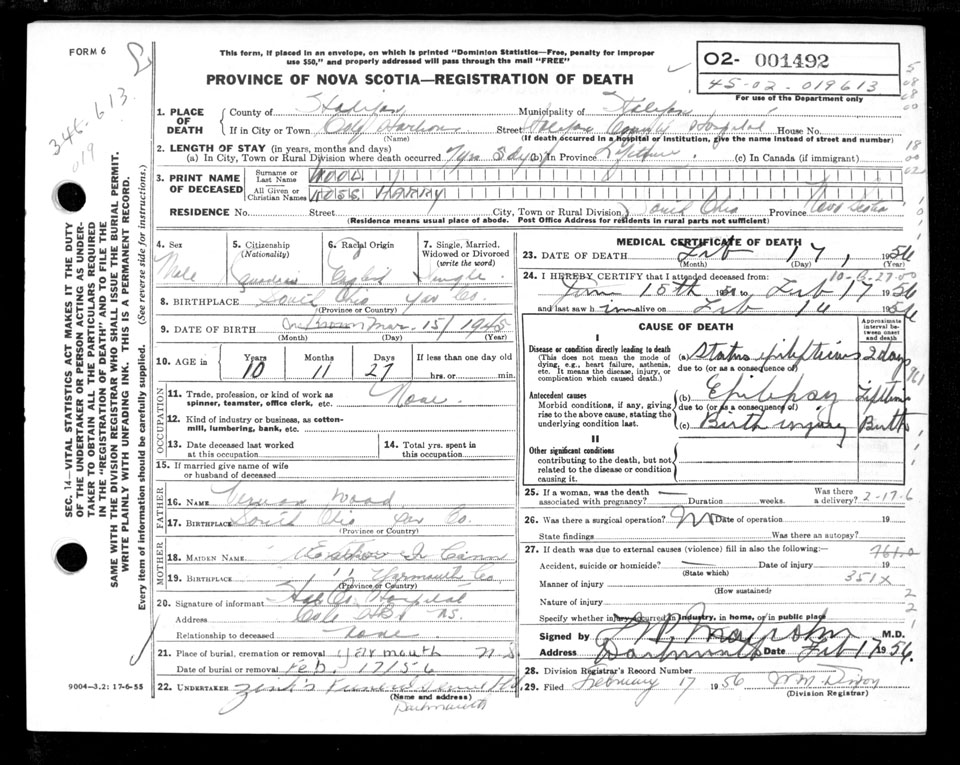 FORM 6
This form, if placed in an envelope, on which is printed "Dominion Statistics—Free, penalty for improper
use $50," and properly addressed will pass through the mail "FREE"
PROVINCE OF NOVA SCOTIA—REGISTRATION OF DEATH
O2- 001492
45-02-019613
For use of the Department only
346-613
019
1. PLACE OF DEATH
County of Halifax Municipality of Halifax
If in City or Town Cole Harbour Street Halifax County Hospital House No.
(Name) (If death occurred in a hospital or institution, give its name instead of street and number)
2. LENGTH OF STAY (in years, months and days)
(a) In City, Town or Rural Division where death occurred 7 yrs (b) In Province Lifetime (c) In Canada (if immigrant)
3. PRINT NAME OF DECEASED
Surname or Last Name WOOD
All Given or Christian Names ROSS HARRY
RESIDENCE No. Street City, Town or Rural Division South Ohio Province Nova Scotia
(Residence means usual place of abode. Post Office Address for residents in rural parts not sufficient)
4. Sex Male
5. Citizenship (Nationality) Canadian
6. Racial Origin England
7. Single, Married, Widowed or Divorced (write the word) Single
8. BIRTHPLACE South Ohio Yar Co.
(Province or Country)
9. DATE OF BIRTH Mar. 15/1945
(Month) (Day) (Year)
10. AGE in Years 10 Months 11 Days 27 If less than one day old hrs. or min.
OCCUPATION
11. Trade, profession, or kind of work as spinner, teamster, office clerk, etc. None
12. Kind of industry or business, as cotten-mill, lumbering, bank, etc.
13. Date deceased last worked at this occupation
14. Total yrs. spent in this occupation
15. If married give name of wife or husband of deceased
FATHER
16. NAME Vernon Wood
17. BIRTHPLACE South Ohio Yar Co.
(Province or Country)
MOTHER
18. MAIDEN NAME Cann
19. BIRTHPLACE " " Yarmouth Co
(Province or Country)
20. Signature of informant Hal Co. Hospital
Address Cole Hbr NS.
Relationship to deceased none
21. Place of burial, cremation or removal Yarmouth N.S
Date of burial or removal Feb. 17/56
22. UNDERTAKER Zink's Funeral
(Name and address)
Dartmouth
9004—3.2: 17-6-55
SEC. 14—VITAL STATISTICS ACT MAKES IT THE DUTY
OF THE UNDERTAKER OR PERSON ACTING AS UNDER-
TAKER TO OBTAIN ALL THE PARTICULARS REQUIRED
IN THE "REGISTRATION OF DEATH" AND TO FILE THE
SAME WITH THE DIVISION REGISTRAR WHO SHALL ISSUE THE BURIAL PERMIT.
WRITE PLAINLY WITH UNFADING INK. THIS IS A PERMANENT RECORD.
Every item of information should be carefully supplied. (See reverse side for instructions.)
MEDICAL CERTIFICATE OF DEATH
23. DATE OF DEATH Feb 17, 1956
(Month) (Day) (Year)
24. I HEREBY CERTIFY that I attended deceased from:
15th 19 to Feb 17 1956
and last saw him alive on Feb 1956
CAUSE OF DEATH
Approximate interval between onset and death
I
Disease or condition directly leading to death
(This does not mean the mode of dying, e.g., heart failure, asthenia, etc. It means the disease, injury, or complication which caused death.)
(a) Status epilepticus 2 days
due to (or as a consequence of)
Antecedent causes
Morbid conditions, if any, giving rise to the above cause, stating the underlying condition last.
(b) Epilepsy Lifetime
due to (or as a consequence of)
(c) Birth injury Birth
II
Other significant conditions
contributing to the death, but not related to the disease or condition causing it.
25. If a woman, was the death associated with pregnancy? Duration weeks. Was there a delivery? 2-17-6
26. Was there a surgical operation? No Date of operation 19
State findings Was there an autopsy?
27. If death was due to external causes (violence) fill in also the following:— 761.0
Accident, suicide or homicide? Date of injury 19
(State which) 351X
Manner of injury
(How sustained)
Nature of injury
Specify whether injury occurred in industry, in home, or in public place
Signed by M.D.
Address Dartmouth Date Feb 17 1956.
28. Division Registrar's Record Number
29. Filed February 17 1956
(Division Registrar)